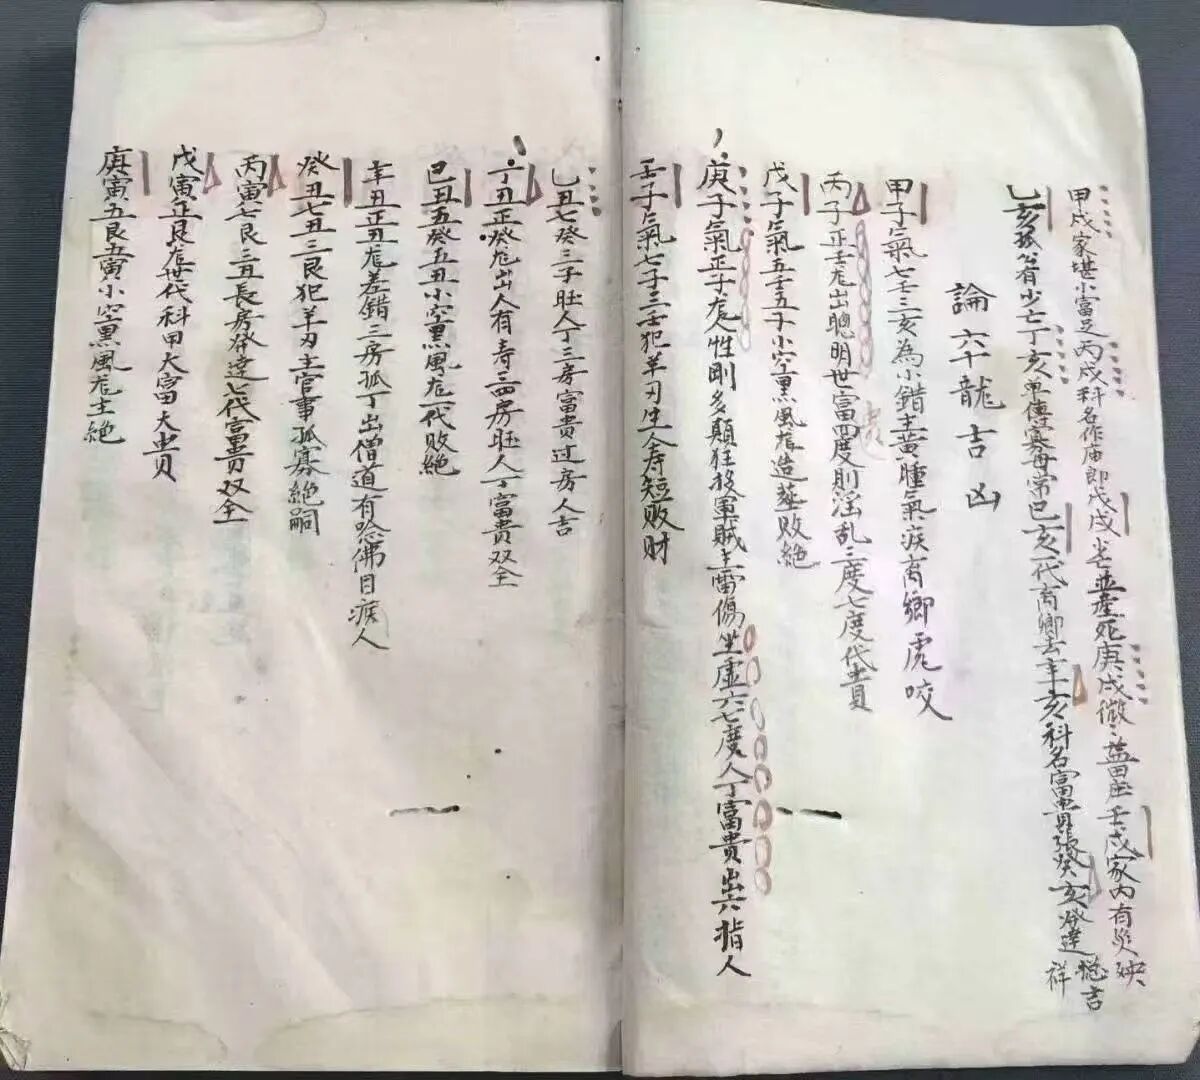 甲戌家堪小富足丙戌科名作庙郎戊戌老並產死庚戌微々益田庄壬戌家内有災殃
乙亥孤寡省少亡丁亥单傳寡母常己亥一代肖卿去辛亥科名富貴張癸亥發達穏吉祥
論六十龍吉凶
甲子氣七壬三亥為小錯主黄腫氣疾肖卿虎咬
丙子正壬龙出聰明世富四度則淫乱二度七度代貴
戊子氣五壬五子小空黒風龙造塟敗絶
庚子氣正子龙人性剛多顛狂投軍賊主雷傷坐虚六七度人丁富貴出六指人
壬子氣七子三壬犯羊刃生人寿短敗财
乙丑七癸三子旺人丁三房富貴过房人吉
丁丑正癸龙出人有寿二四房旺人丁富贵双全
己丑五癸五丑小空黒風龙一代敗絶
辛丑正丑龙差錯三房孤丁出僧道有唸佛目疾人
癸丑七丑三艮犯羊刃主官事孤寡絶嗣
丙寅七艮三丑長房發達七代富貴双全
戊寅正艮龙世代科甲大富大貴
庚寅五艮五寅小空黒風龙主絶